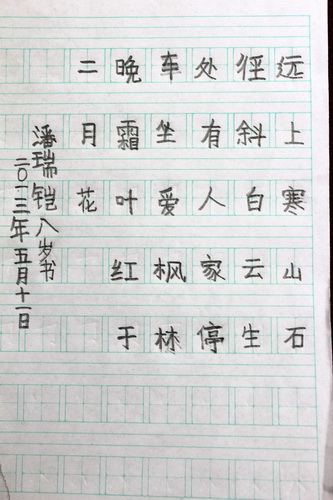 远上寒山石
径斜白云生
处有人家停
车坐爱枫林
晚霜叶红于
二月花
潘瑞铠八岁书
二〇一三年五月十一日